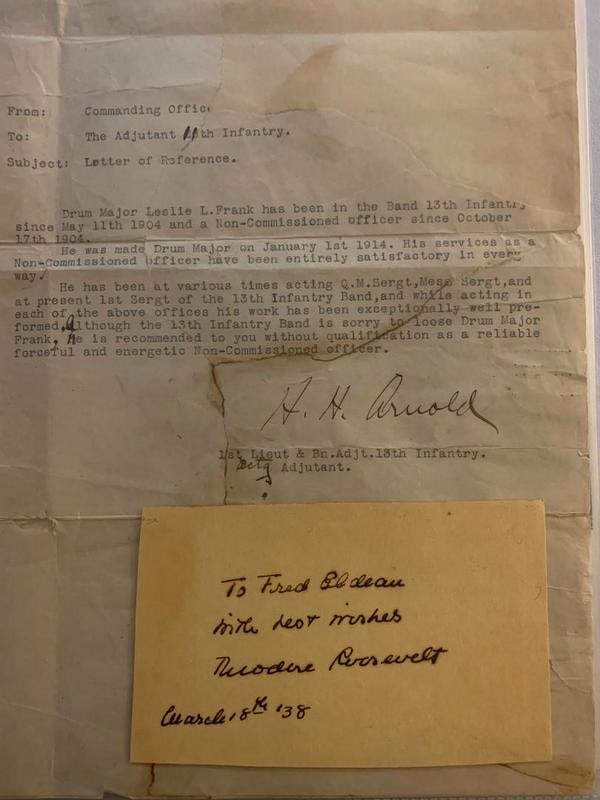 From: Commanding Offic
To: The Adjutant 11th Infantry.
Subject: Letter of Reference.
Drum Major Leslie L.Frank has been in the Band 13th Infantry
since May 11th 1904 and a Non-Commissioned officer since October
17th 1904.
He was made Drum Major on January 1st 1914. His services as a
Non-Commissioned officer have been entirely satisfactory in every
way.
He has been at various times acting Q.M.Sergt,Mess Sergt,and
at present 1st Sergt of the 13th Infantry Band,and while acting in
each of the above offices his work has been exceptionally well pre-
formed, Although the 13th Infantry Band is sorry to loose Drum Major
Frank, He is recommended to you without qualification as a reliable
forceful and energetic Non-Commissioned officer.
H. H. Arnold
1st Lieut & Bn.Adjt.13th Infantry.
Actg Adjutant.
To Fred Eldean
With best wishes
Theodore Roosevelt
March 18th '38